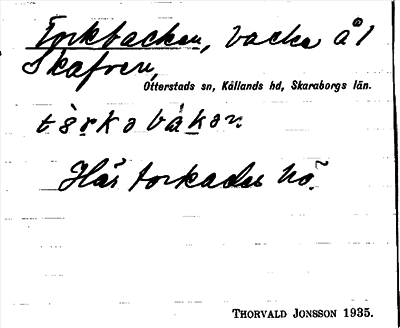 Torkbacken, backe å 1
Skafven,
Otterstads sn, Kållands hd, Skaraborgs län.
Här torkades hö.
THORVALD JONSSON 1935.